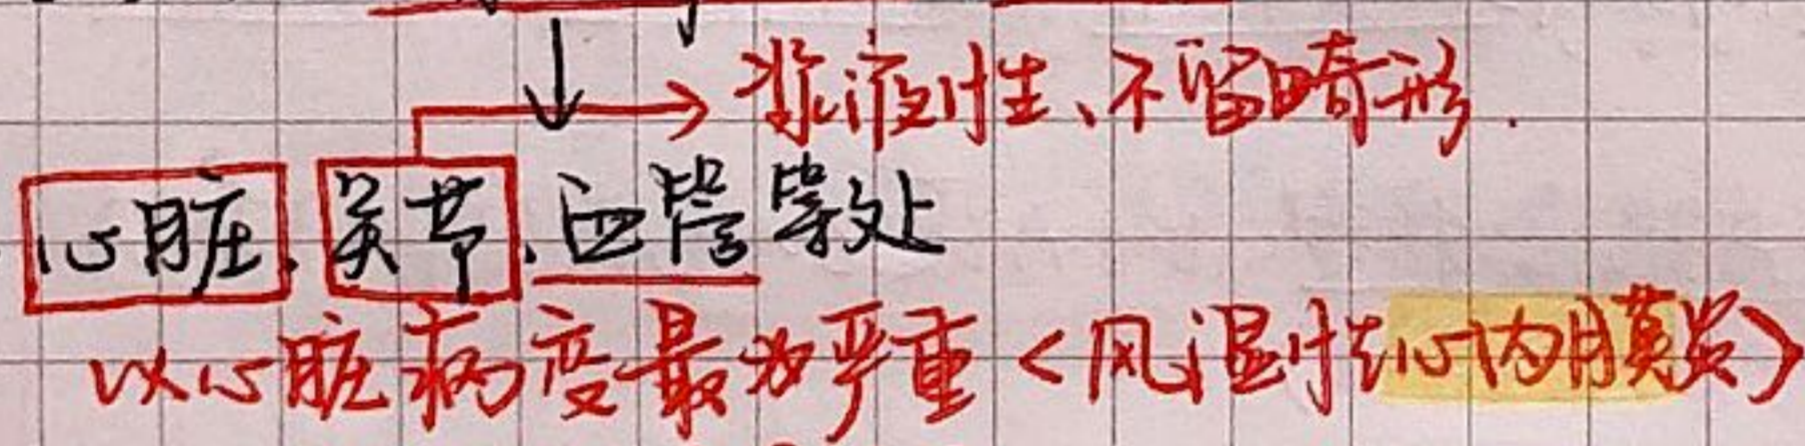 游走性、不留畸形.
心脏、关节、血管等处
以心脏病变最为严重<风湿性心内膜炎>